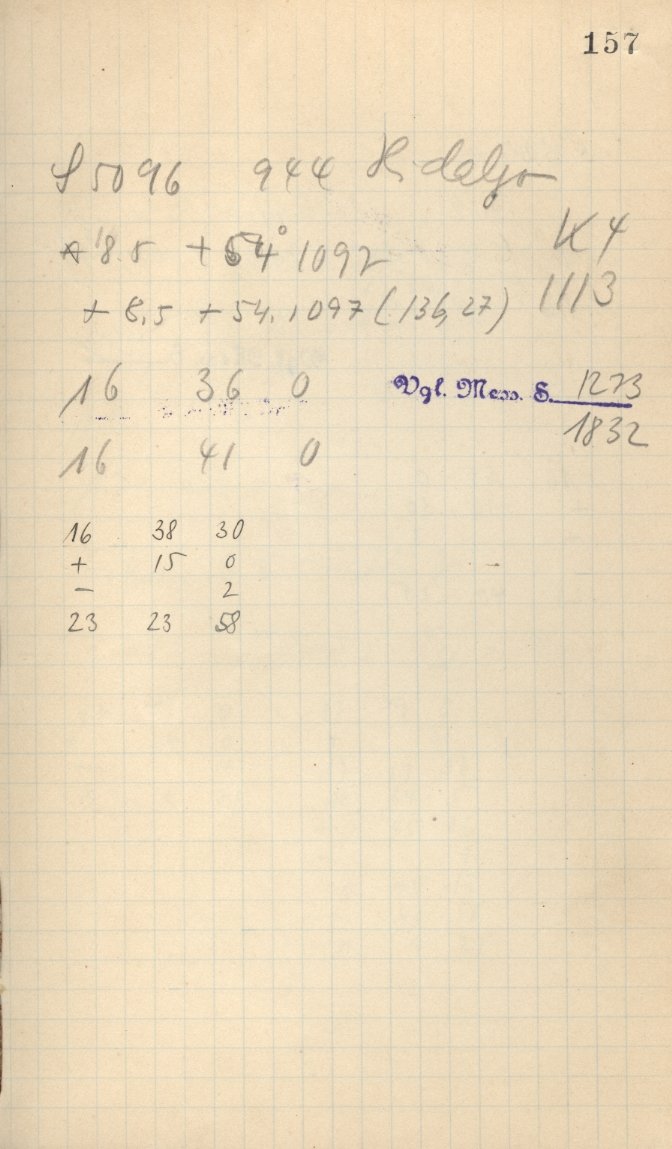 157
S 5096 944 Hidalgo
* 8.5 + 54° 1092
K 4
+ 8,5 + 54,1097 (136,27) 1113
16 36 0
Vgl. Mess. S. 1273
1832
16 41 0
16 38 30
+ 15 0
- 2
23 23 58